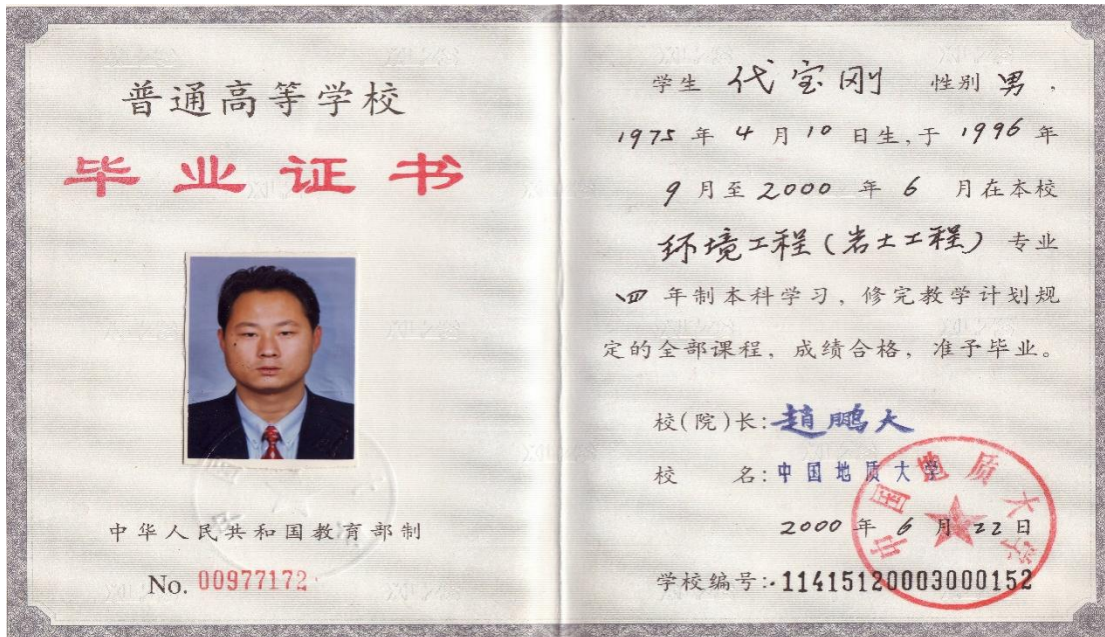 普通高等学校
毕业证书
中华人民共和国教育部制
No. 00977172
学生 代宝刚 性别 男，
1975 年 4 月 10 日生，于 1996 年
9 月至 2000 年 6 月在本校
环境工程（岩土工程）专业
四 年制本科学习，修完教学计划规
定的全部课程，成绩合格，准予毕业。
校(院)长：趙鹏大
校 名：中国地质大学
2000 年 6 月 22 日
学校编号：11415120003000152
中国地质大学